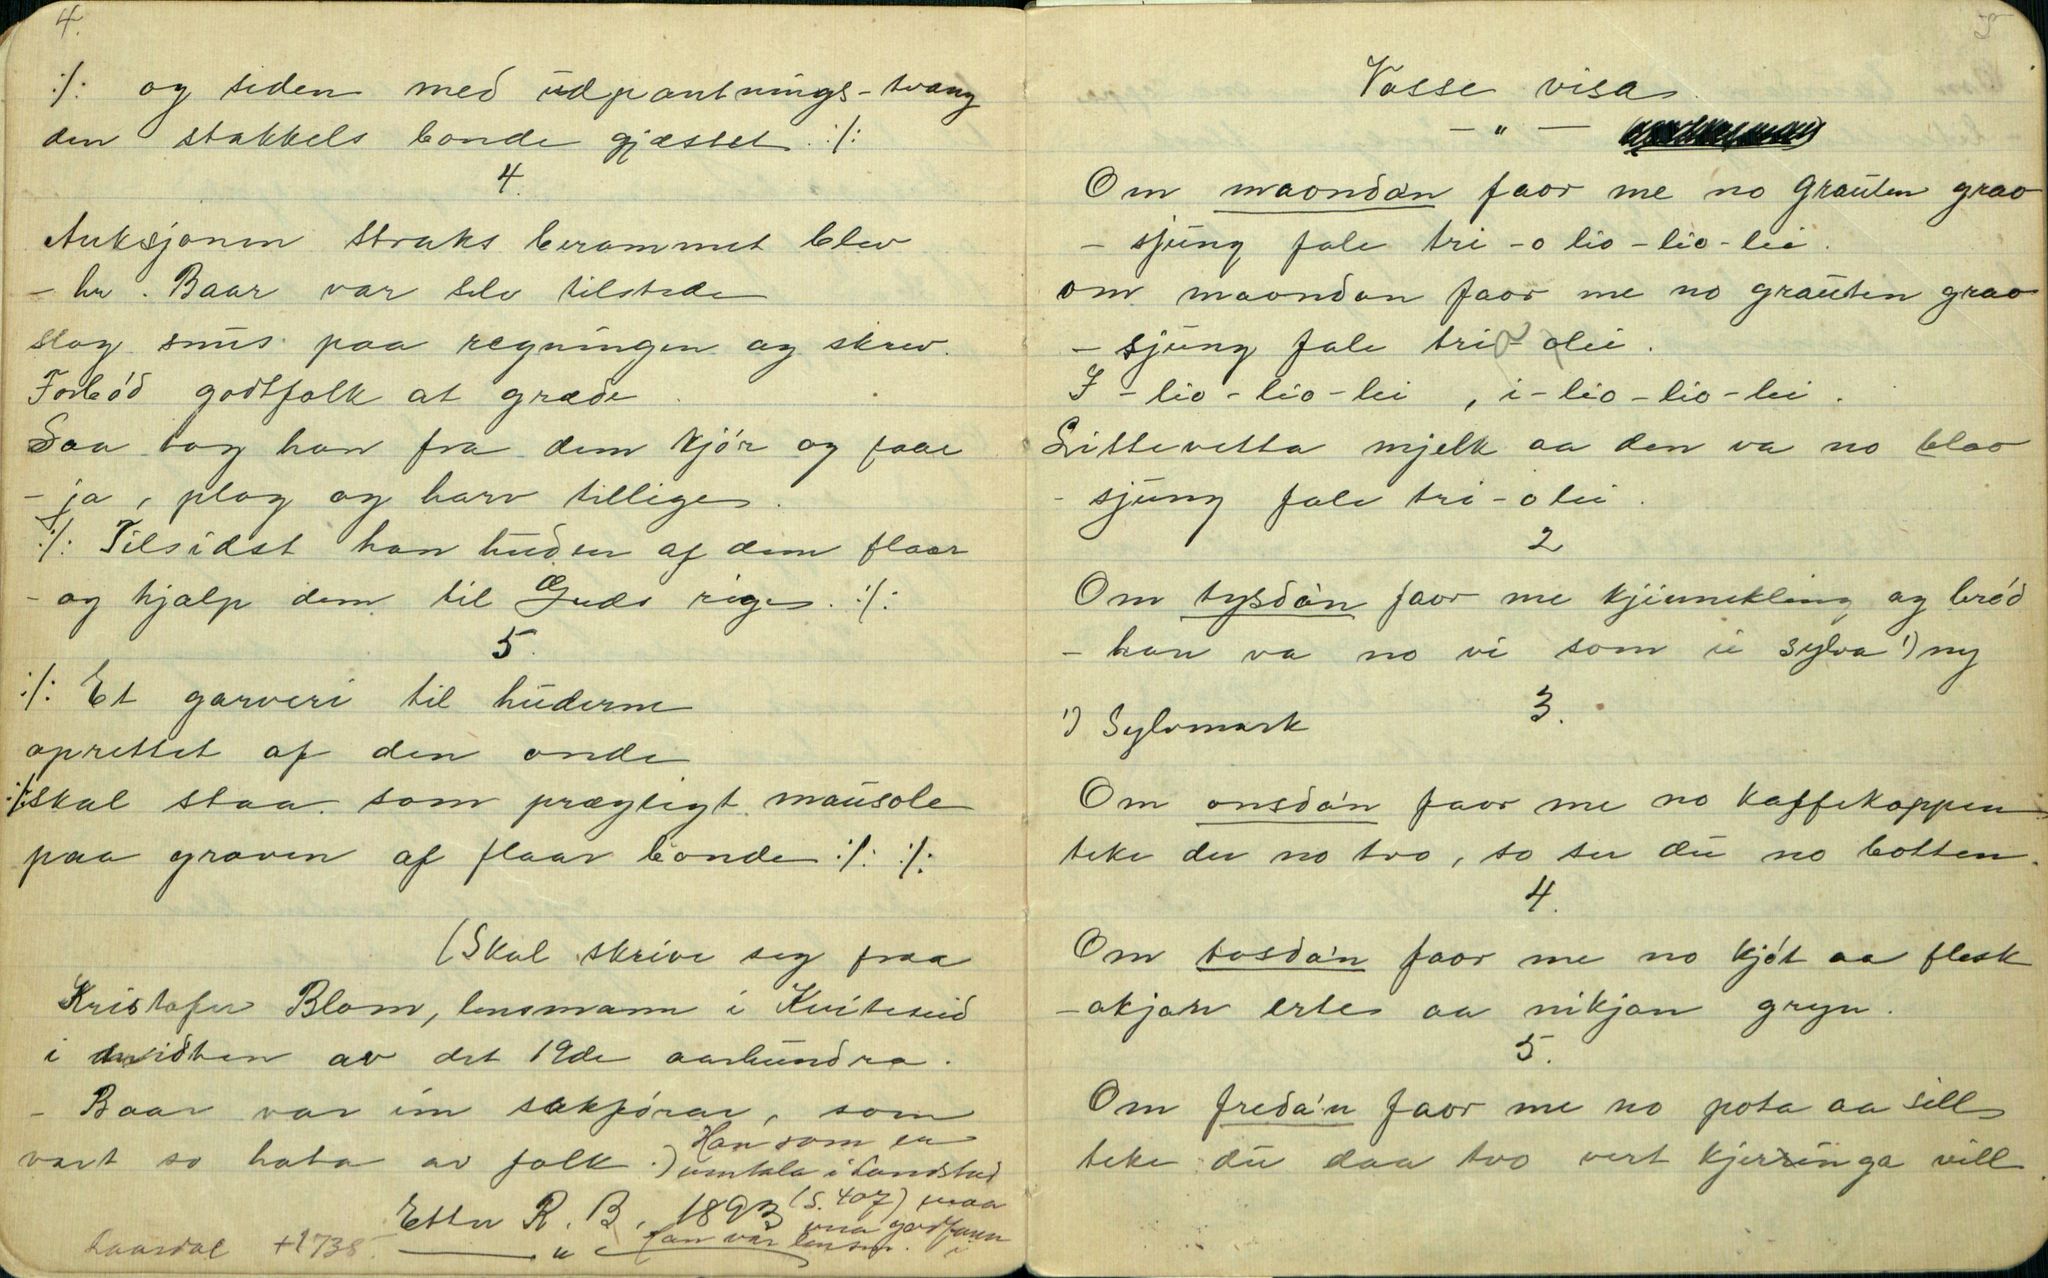 4.
:/: og siden med udpantnings-tvang
den stakkels bonde gjæstet. :/:
4.
Auksjonen straks berammet blev
- hr. Baar var selv tilstede
slog snus paa regningen og skrev.
Forbød godtfolk at græde.
Saa tog han fra dem kjør og faar
- ja, plog og harv tillige.
:/: Tilsidst han huden af dem flaar
- og hjalp dem til Guds rige. :/:
5.
:/: Et garveri til huderne
oprettet af den onde
:/: skal staa som prægtigt mausole
paa graven af flaar bonde :/: :/:
(Skal skrive seg fraa
Kristofer Blom, lensmann i Kviteseid
i midten av det 19de aarhundra.
- Baar var ein sakførar, som
vart so hata av folk.)
Han som er
omtala i Landstad
(S. 407) maa
vera godfaren
Etter R. B. 1893
han var lensm. i
Laardal +1738.
— " —
5
Vosse visa
- " -
Om maondan faor me no grauten grao
- sjung fale tri-o lio-lio-lei.
om maondan faor me no grauten grao
- sjung fale tri-olei.
I-lio-lio-lei, i-lio-lio-lei.
Littevetta mjelk aa den va no blao
- sjung fale tri-olei.
2
Om tysdan faor me kjinnekling og brød
- han va no vi som ei sylva 1) ny
3.
1) Sylvmark
Om onsdan faor me no kaffekoppen
teke du no tvo, so ser du no botten.
4.
Om tosdan faor me no kjøt aa flesk
- okjan ertes aa nikjan gryn.
5.
Om fredan faor me no pota aa sill
teke du daa tvo vert kjerringa vill